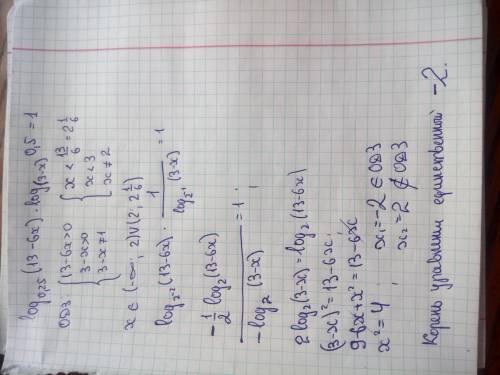 log₀,₂₅(13-6x)·log₍₃₋ₓ₎0,5=1
ОДЗ { 13-6x>0 { x < 13/6 = 2 1/6
3-x>0 x<3
3-x≠1 x≠2
x ∈ (-∞; 2)∪(2; 2 1/6)
log₂₋₂(13-6x) · 1/(log₂₋₁(3-x)) = 1
(-1/2 log₂(13-6x))/(-log₂(3-x)) = 1 ;
2log₂(3-x)=log₂(13-6x)
(3-x)²=13-6x;
9-6x+x²=13-6x
x²=4 ; x₁=-2 ∈ ОДЗ
x₂=2 ∉ ОДЗ
Корень уравнения единственный -2.